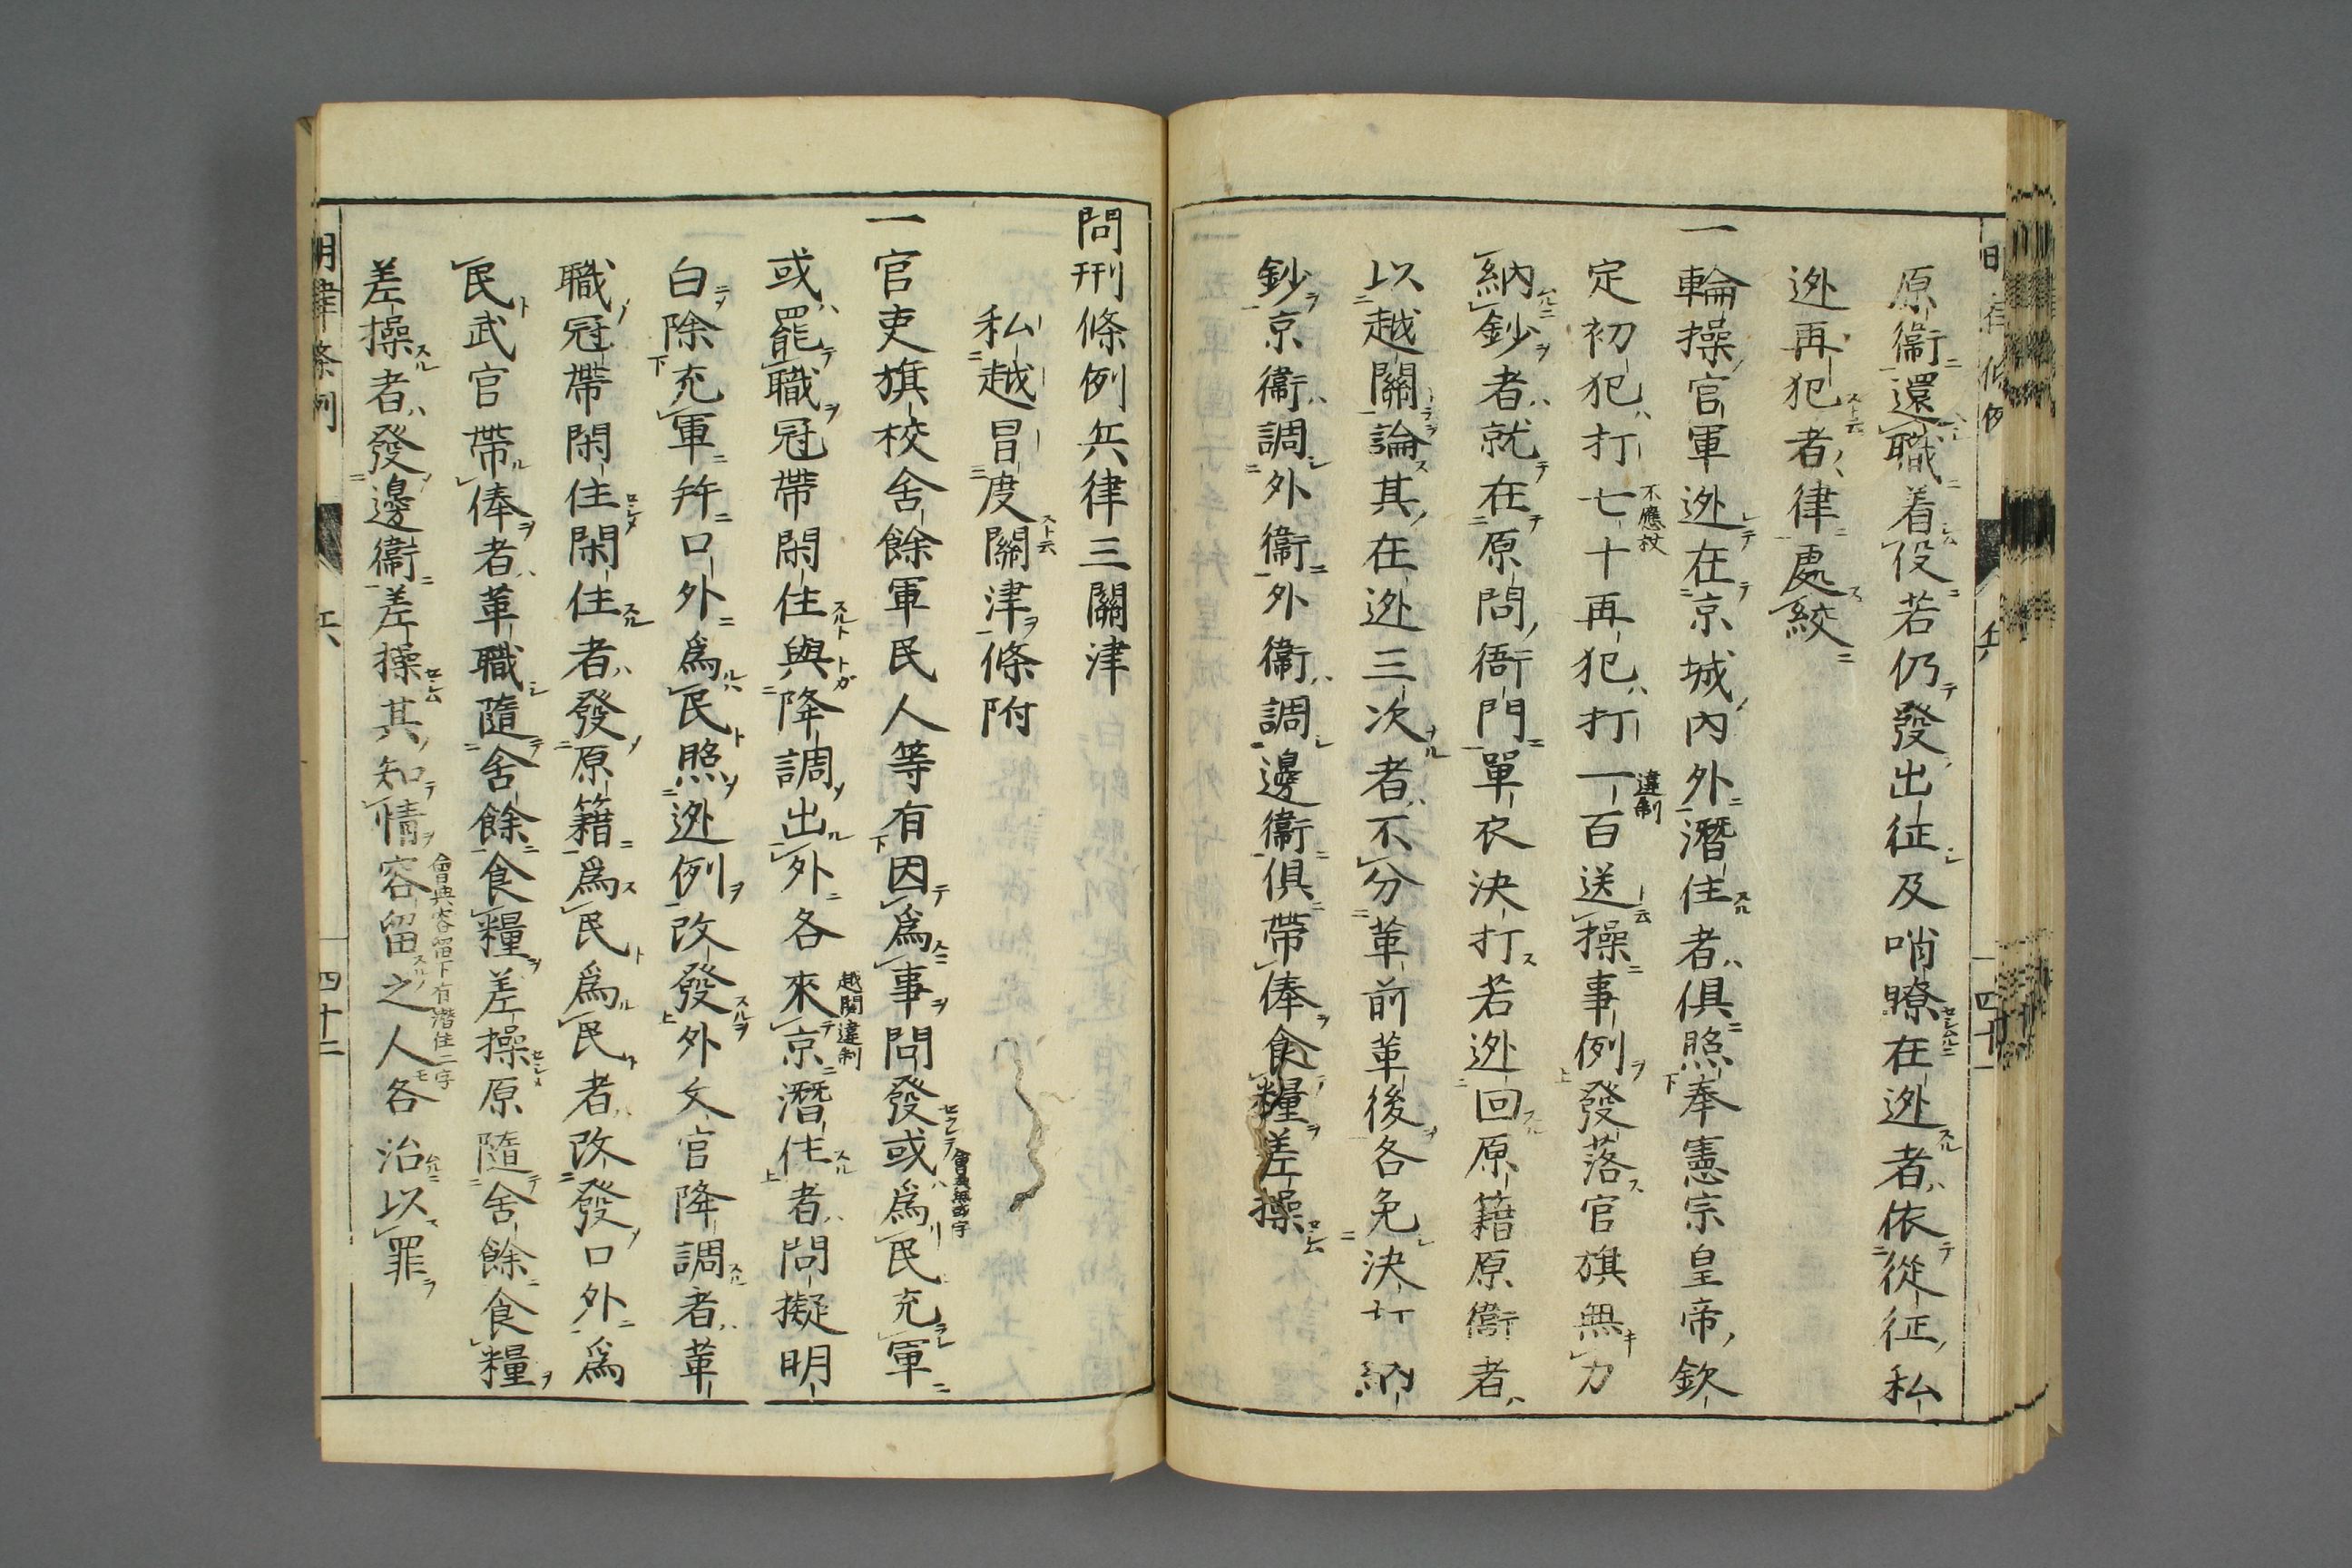 原衞還職着役若仍發出征及哨瞭在迯者依從征私
迯再犯者律處絞
一輪操官軍迯在京城內外潛住者俱照奉憲宗皇帝欽
定初犯打七十再犯打一百送操事例發落官旗無力
不應杖
違制
納鈔者就在原問衙門單衣決打若迯回原籍原衞者
以越關論其在迯三次者不分革前革後各免決打納
鈔京衞調外衞外衞調邊衞俱帶俸食糧差操
問刑條例兵律三關津
私越冒度關津條附
一官吏旗校舍餘軍民人等有因爲事問發或爲民充軍
或罷職冠帶閑住與降調出外各來京潛住者問擬明
越關違制
白除充軍幷口外爲民照迯例改發外文官降調者革
職冠帶閑住閑住者發原籍爲民爲民者改發口外爲
民武官帶俸者革職隨舍餘食糧差操原隨舍餘食糧
差操者發邊衞差操其知情容留之人各治以罪
會典容留下有潛住二字
明律條例
兵
四十二